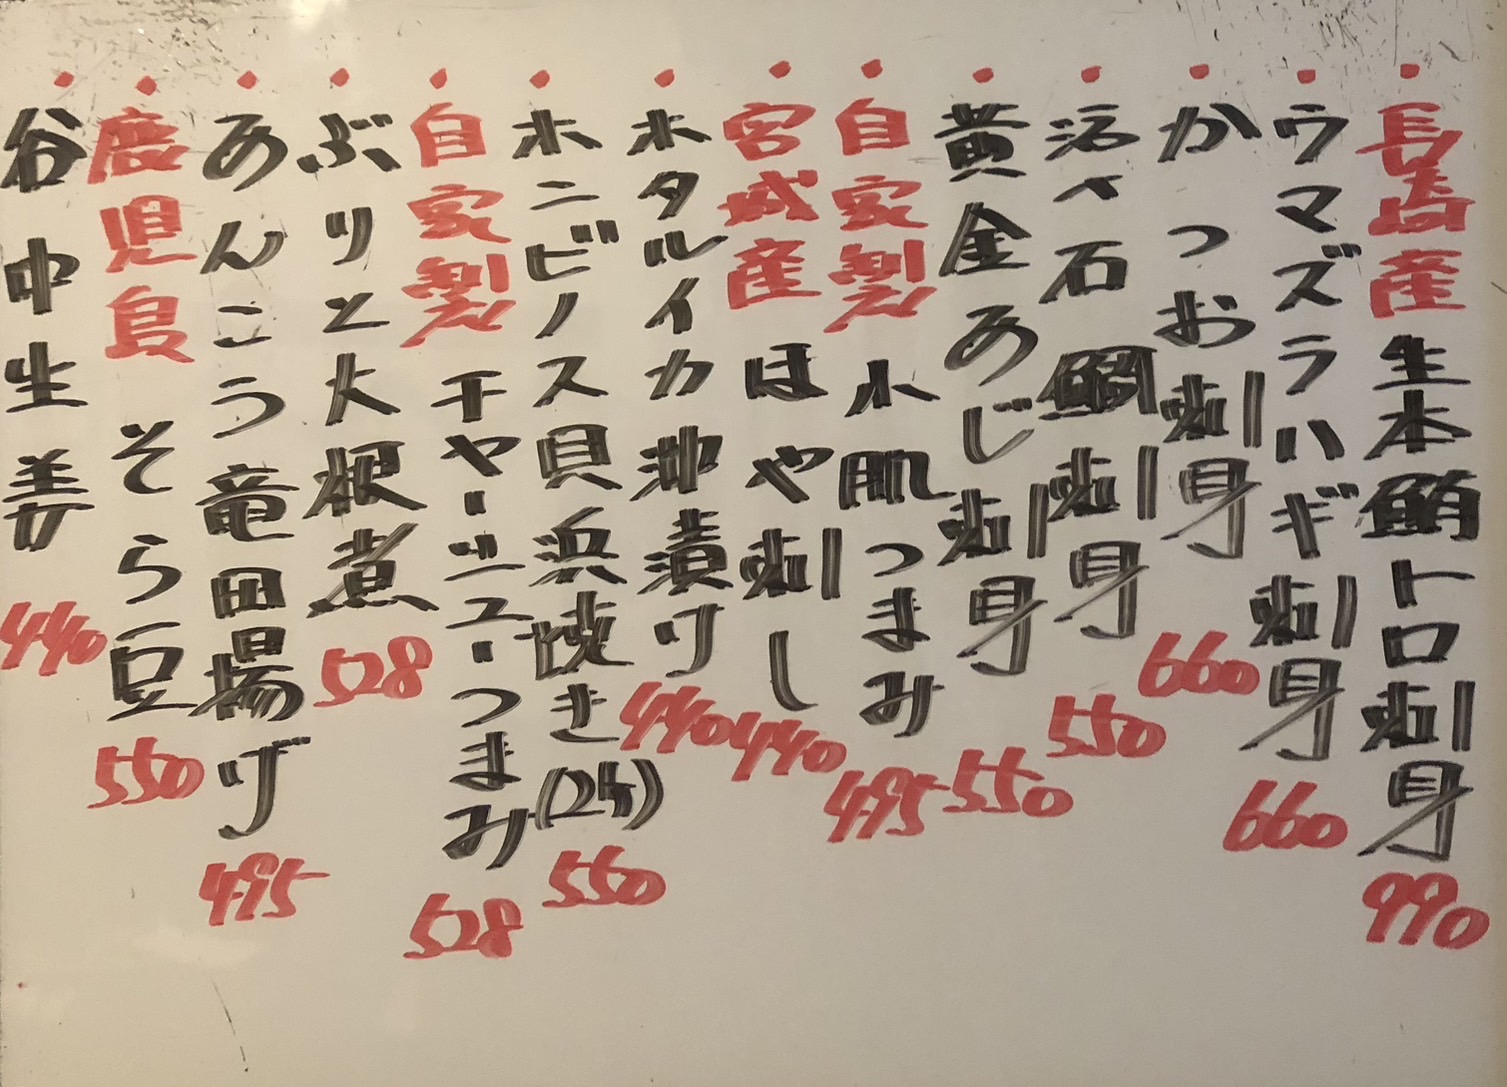 ・長崎産 生本鮪トロ刺身 990
・ウマズラハギ刺身 660
・かつお刺身 660
・活〆石鯛刺身 550
・黄金あじ刺身 550
・自家製 小肌つまみ 495
・宮城産 ほや刺し 440
・ホタルイカ沖漬け 440
・ホンビノス貝浜焼き(2ケ) 550
・自家製 チャーシューつまみ 528
・ぶりと大根煮 528
・あんこう竜田揚げ 495
・鹿児島 そら豆 550
・谷中生姜 440